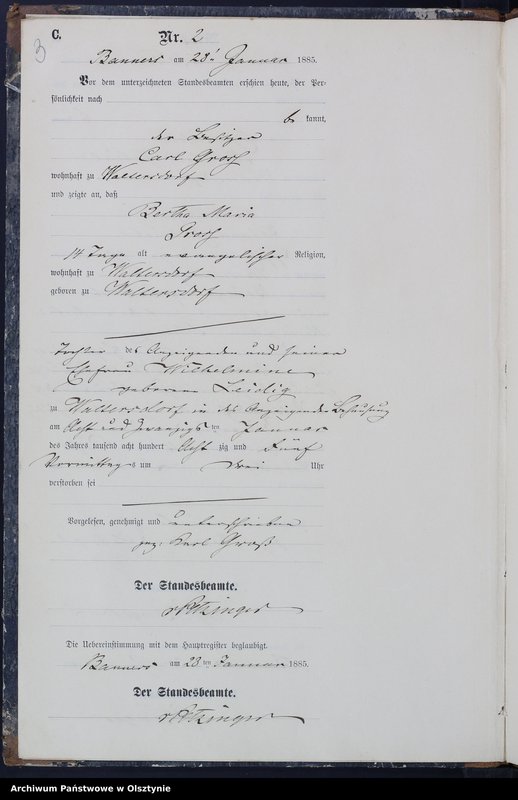 3
C.
Nr. 2
Banners am 28ten Januar 1885.
Vor dem unterzeichneten Standesbeamten erschien heute, der Per-
sönlichkeit nach
be kannt,
der Besitzer
Carl Groß
wohnhaft zu Waltersdorf
und zeigte an, daß
Bertha Maria
Groß
14 Tage alt evangelischer Religion,
wohnhaft zu Waltersdorf
geboren zu Waltersdorf
Tochter des Anzeigenden und seiner
Ehefrau Wilhelmine
geborene Leidig
zu Waltersdorf in des Anzeigenden Behausung
am Acht und zwanzigsten Januar
des Jahres tausend acht hundert Acht zig und Fünf
Vormittags um drei Uhr
verstorben sei
Vorgelesen, genehmigt und unterschrieben
gez: Karl Groß
Der Standesbeamte.
Die Uebereinstimmung mit dem Hauptregister beglaubigt.
Banners am 28ten Januar 1885.
Der Standesbeamte.
Archiwum Państwowe w Olsztynie